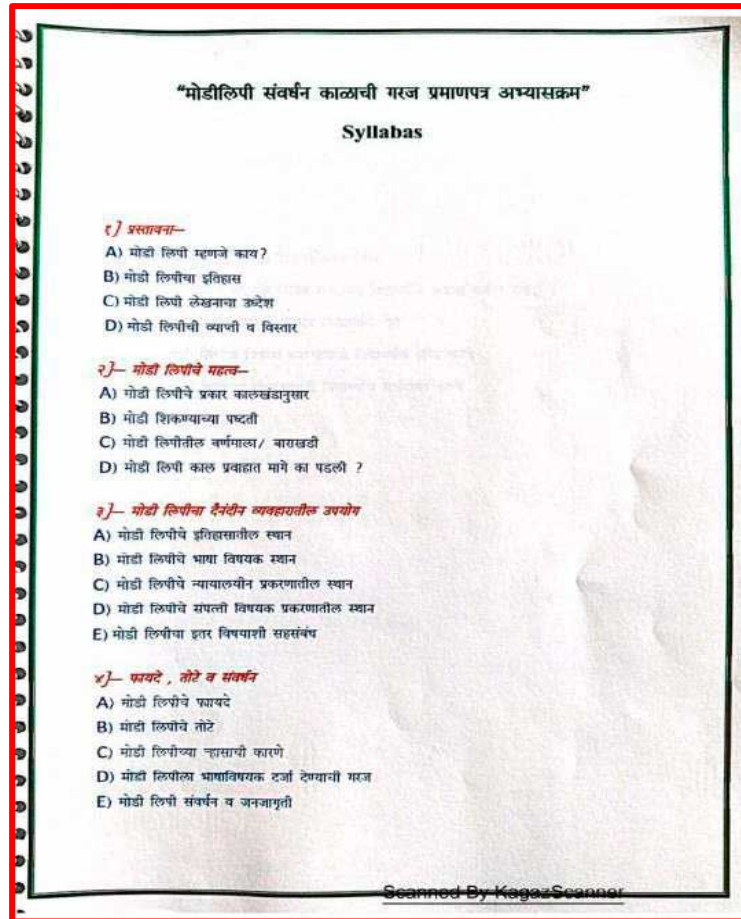 “मोडीलिपी संवर्धन काळाची गरज प्रमाणपत्र अभ्यासक्रम”
Syllabas
१] प्रस्तावना–
A) मोडी लिपी म्हणजे काय?
B) मोडी लिपीचा इतिहास
C) मोडी लिपी लेखनाचा उध्देश
D) मोडी लिपीची व्याप्ती व विस्तार
२]– मोडी लिपीचे महत्व–
A) मोडी लिपीचे प्रकार कालखंडानुसार
B) मोडी शिकण्याच्या पध्दती
C) मोडी लिपीतील वर्णमाला/ बाराखडी
D) मोडी लिपी काल प्रवाहात मागे का पडली ?
३]– मोडी लिपीचा दैनंदीन व्यवहारातील उपयोग
A) मोडी लिपीचे इतिहासातील स्थान
B) मोडी लिपीचे भाषा विषयक स्थान
C) मोडी लिपीचे न्यायालयीन प्रकरणातील स्थान
D) मोडी लिपीचे संपत्ती विषयक प्रकरणातील स्थान
E) मोडी लिपीचा इतर विषयाशी सहसंबंध
४]– फायदे , तोटे व संवर्धन
A) मोडी लिपीचे फायदे
B) मोडी लिपीचे तोटे
C) मोडी लिपीच्या ऱ्हासाची कारणे
D) मोडी लिपीला भाषाविषयक दर्जा देण्याची गरज
E) मोडी लिपी संवर्धन व जनजागृती
Scanned By KagazScanner